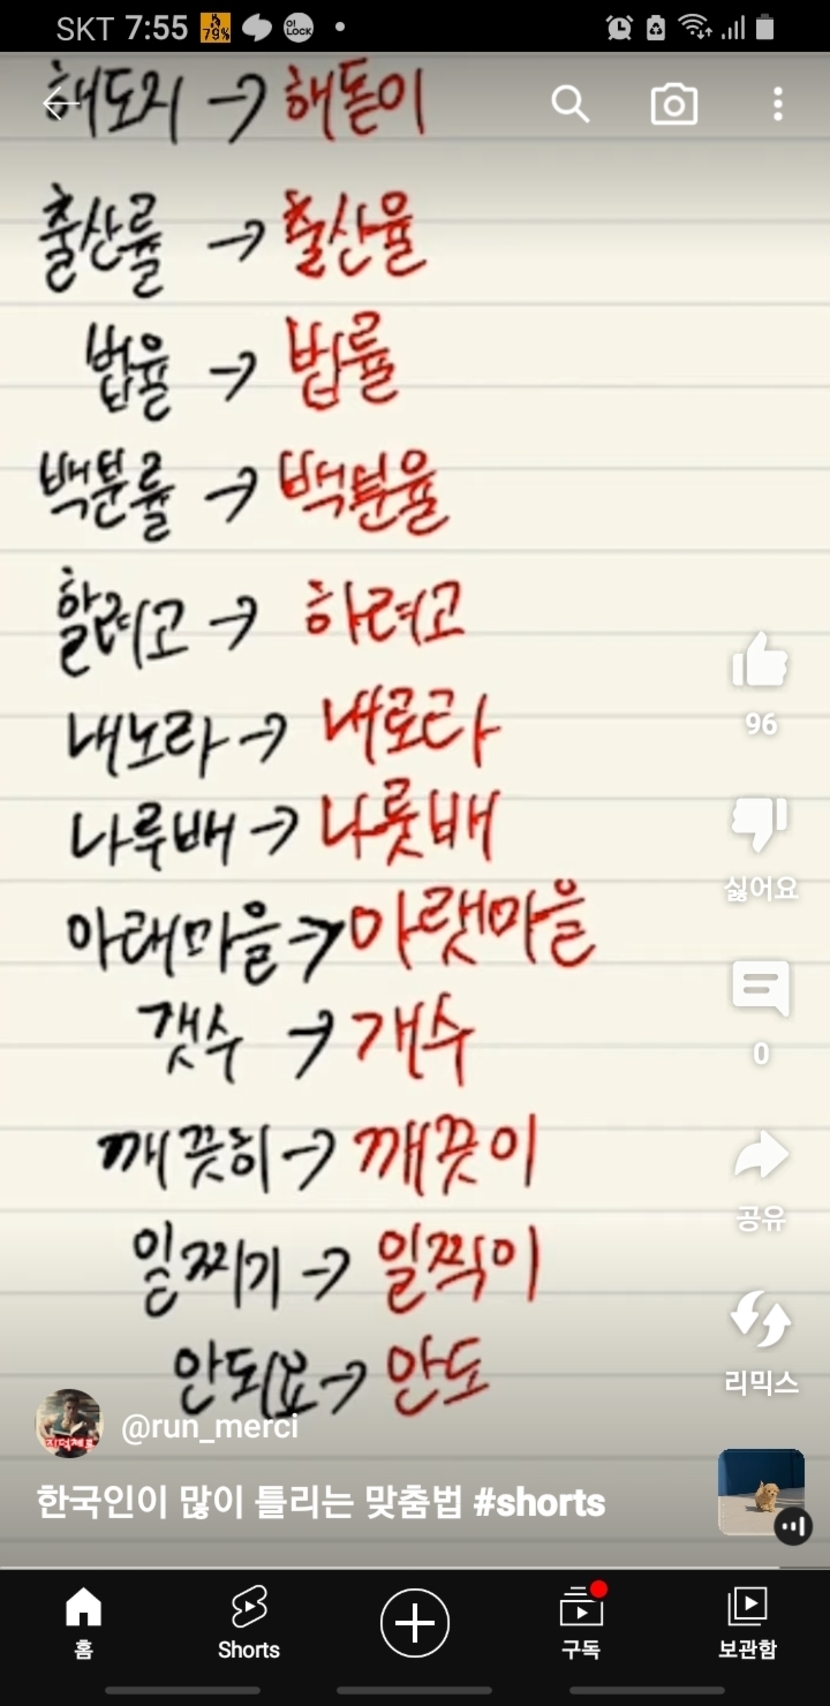 SKT 7:55 79% O! LOCK
해도지 → 해돋이
출산률 → 출산율
법율 → 법률
백분률 → 백분율
할려고 → 하려고
내노라 → 내로라
나루배 → 나룻배
96
싫어요
아래마을 → 아랫마을
갯수 → 개수
0
깨끗히 → 깨끗이
공유
일찌기 → 일찍이
리믹스
안되요 → 안도
@run_merci
한국인이 많이 틀리는 맞춤법 #shorts
홈 Shorts 구독 보관함